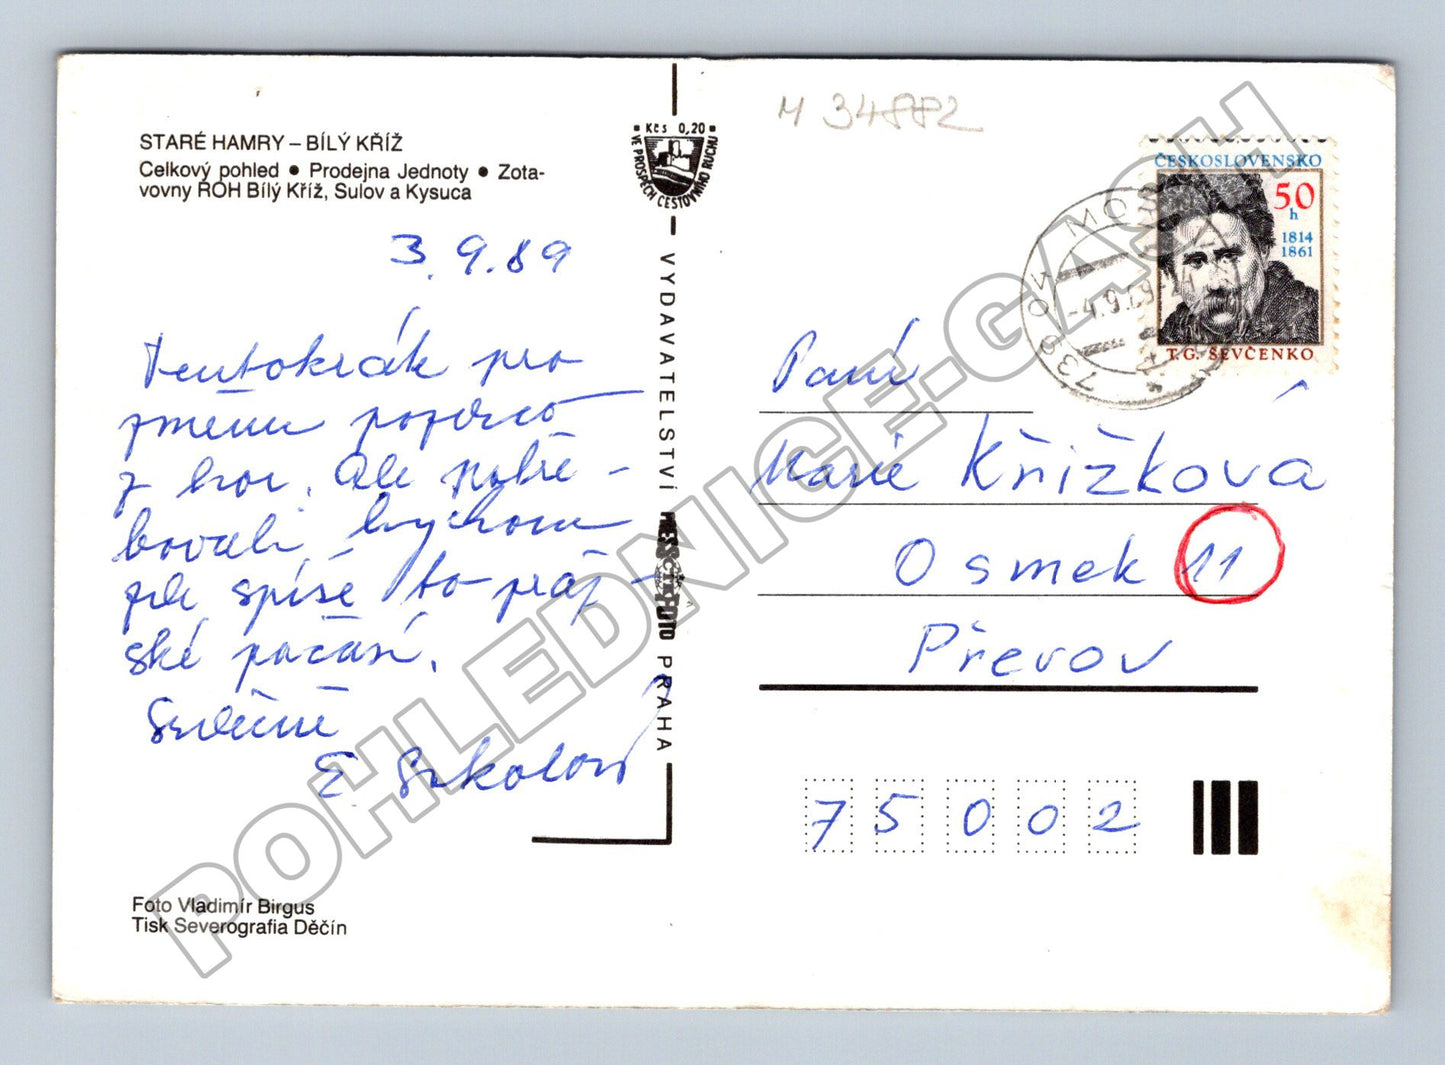 STARÉ HAMRY – BÍLÝ KŘÍŽ
Celkový pohled ● Prodejna Jednoty ● Zota-
vovny ROH Bílý Kříž, Sulov a Kysuca
3.9.89
Tentokrát pro
změnu pozdrav
z hor. Ale potře-
bovali bychom
zde spíše to praž-
ské počasí.
Srdečně
E Sokolová
Foto Vladimír Birgus
Tisk Severografia Děčín
Kčs 0,20
VE PROSPĚCH CESTOVNÍHO RUCHU
VYDAVATELSTVÍ PRESSFOTO PRAHA
M 34882
ČESKOSLOVENSKO
50
h
1814
1861
T.G. ŠEVČENKO
-4.9.89-
Paní
Marie Křižková
Osmek 11
Přerov
75002
POHLEDNICE-GASH